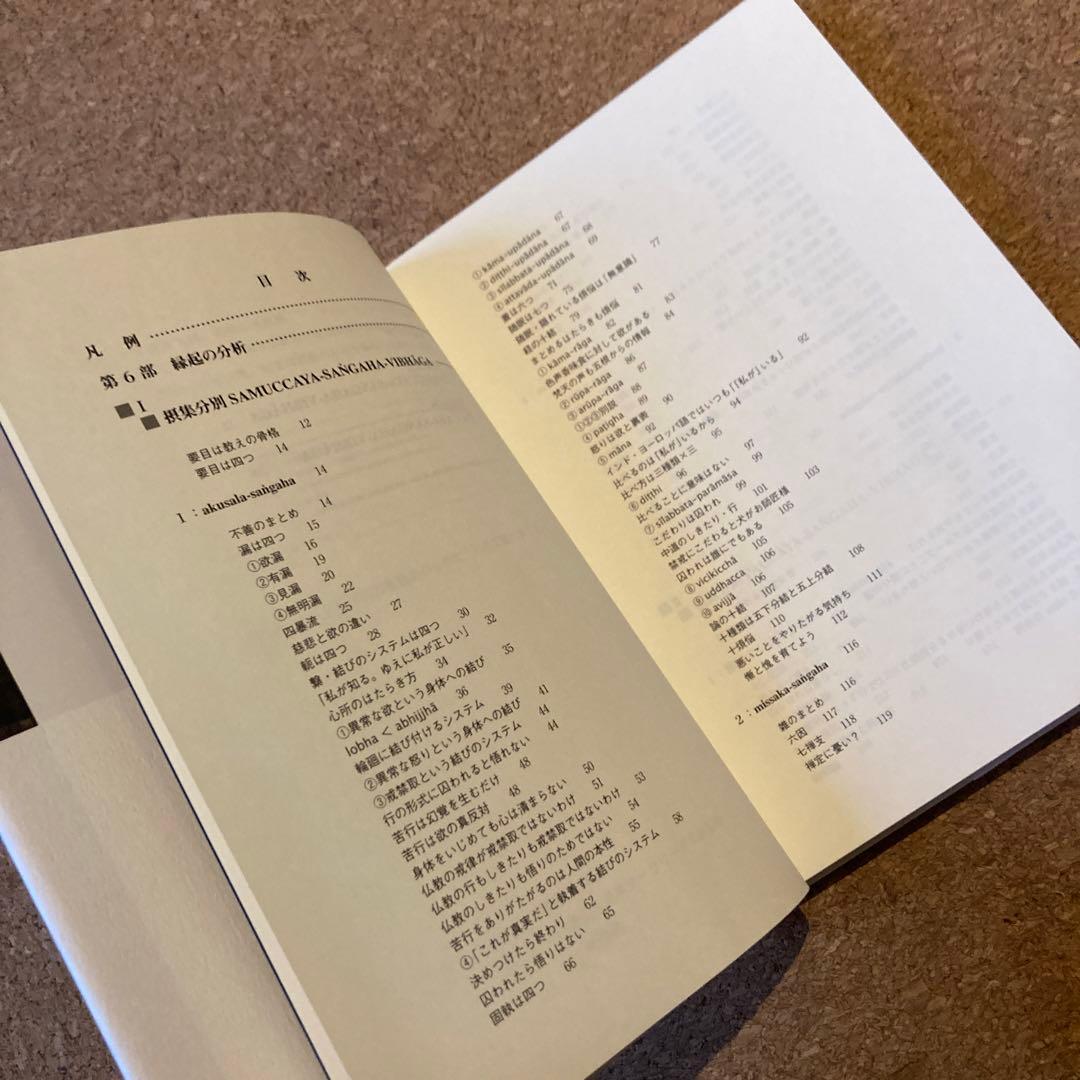 目 次
凡 例
第6部 縁起の分析
I
摂集分別 SAMUCCAYA-SAṄGAHA-VIBHĀGA
要目は教えの骨格 12
要目は四つ 14
1：akusala-saṅgaha 14
不善のまとめ 14
漏は四つ 15
①欲漏 16
②有漏 19
③見漏 20
④無明漏 22
四暴流 25
慈悲と欲の違い 27
軛は四つ 28
繋・結びのシステムは四つ 30
「私が知る。ゆえに私が正しい」 32
心所のはたらき方 34
①異常な欲という身体への結び 35
lobha < abhijjhā 36
輪廻に結び付けるシステム 39
②異常な怒りという身体への結び 41
③戒禁取という結びのシステム 44
行の形式に囚われると悟れない 44
苦行は幻覚を生むだけ 48
苦行は欲の真反対 48
身体をいじめても心は清まらない 50
仏教の戒律が戒禁取ではないわけ 51
仏教の行もしきたりも戒禁取ではないわけ 53
仏教のしきたりも悟りのためではない 54
苦行をありがたがるのは人間の本性 55
④「これが真実だ」と執着する結びのシステム 58
決めつけたら終わり 62
囚われたら悟りはない 65
固執は四つ 66
①kāma-upādāna 67
②diṭṭhi-upādāna 67
③sīlabbata-upādāna 68
④attavāda-upādāna 69
蓋は六つ 71
随眠は七つ 75
随眠・隠れている煩悩は「無意識」 77
結の十結 79
まとめるはたらきも煩悩 81
①kāma-rāga 82
色声香味触に対して欲がある 83
梵天の声も五根からの情報 84
②rūpa-rāga 86
③arūpa-rāga 87
①②③別説 88
④paṭigha 89
怒りは欲と裏表 90
⑤māna 92
インド・ヨーロッパ語ではいつも「「私が」いる」 92
比べるのは「私が」いるから 94
比べ方は三種類×三 95
⑥diṭṭhi 96
比べることに意味はない 97
⑦sīlabbata-parāmāsa 99
こだわりは囚われ 99
中道のしきたり・行 101
禁戒にこだわると犬がお師匠様 103
囚われは誰にでもある 105
⑧vicikicchā 105
⑨uddhacca 106
⑩avijjā 106
論の十結 107
十種類は五下分結と五上分結 108
十煩悩 110
悪いことをやりたがる気持ち 111
慚と愧を育てよう 112
2：missaka-saṅgaha 116
雑のまとめ 116
六因 117
七禅支 118
禅定に憂い？ 119